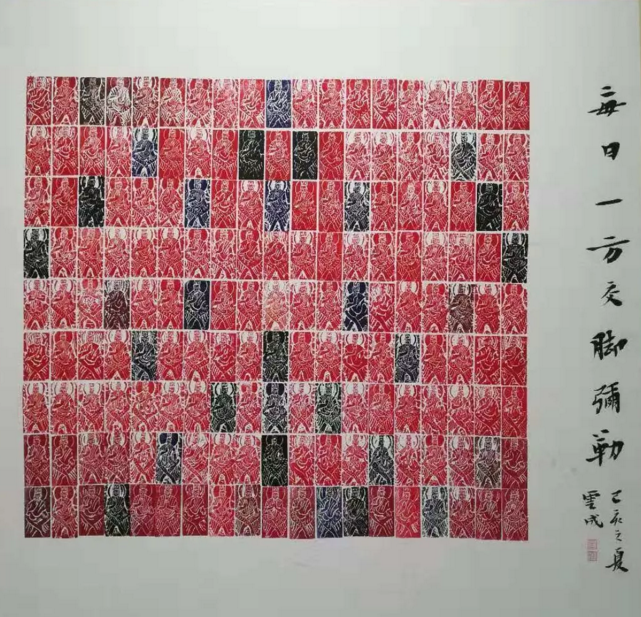 每日一方交脚彌勒
己亥之夏
雲成